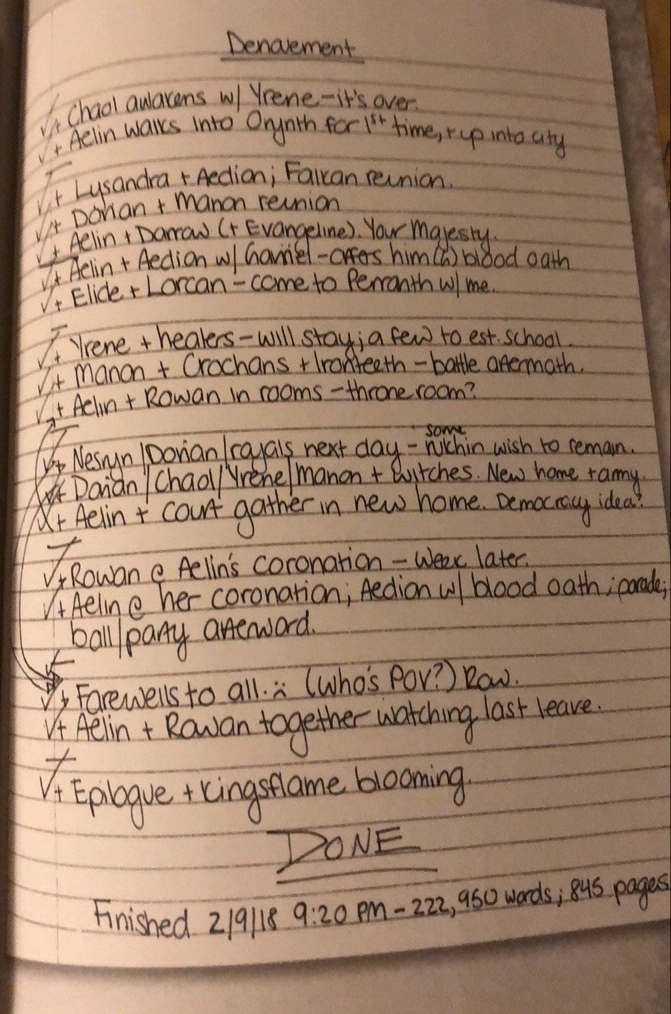 Denouement
✓+ Chaol awakens w/ Yrene - it's over.
✓+ Aelin walks into Orynth for 1st time, + up into city
✓+ Lysandra + Aedion; Falkan reunion.
✓+ Dorian + Manon reunion
✓+ Aelin + Darrow (+ Evangeline). Your Majesty.
✓+ Aelin + Aedion w/ Gavriel - offers him (A) blood oath
✓+ Elide + Lorcan - come to Perranth w/ me.
✓+ Yrene + healers - will stay; a few to est. school.
✓+ Manon + Crochans + Ironteeth - battle aftermath.
✓+ Aelin + Rowan in rooms - throne room?
some
✓+ Nesryn/Dorian/royals next day - rukhin wish to remain.
✓+ Dorian/Chaol/Yrene/Manon + witches. New home + army.
✓+ Aelin + court gather in new home. Democracy idea?
✓+ Rowan @ Aelin's coronation - week later.
✓+ Aelin @ her coronation; Aedion w/ blood oath; parade;
ball/party afterward.
✓+ Farewells to all. :( (Who's POV?) Row.
✓+ Aelin + Rowan together watching last leave.
✓+ Epilogue + kingsflame blooming.
DONE
Finished 2/9/18 9:20 PM - 222,950 words; 845 pages